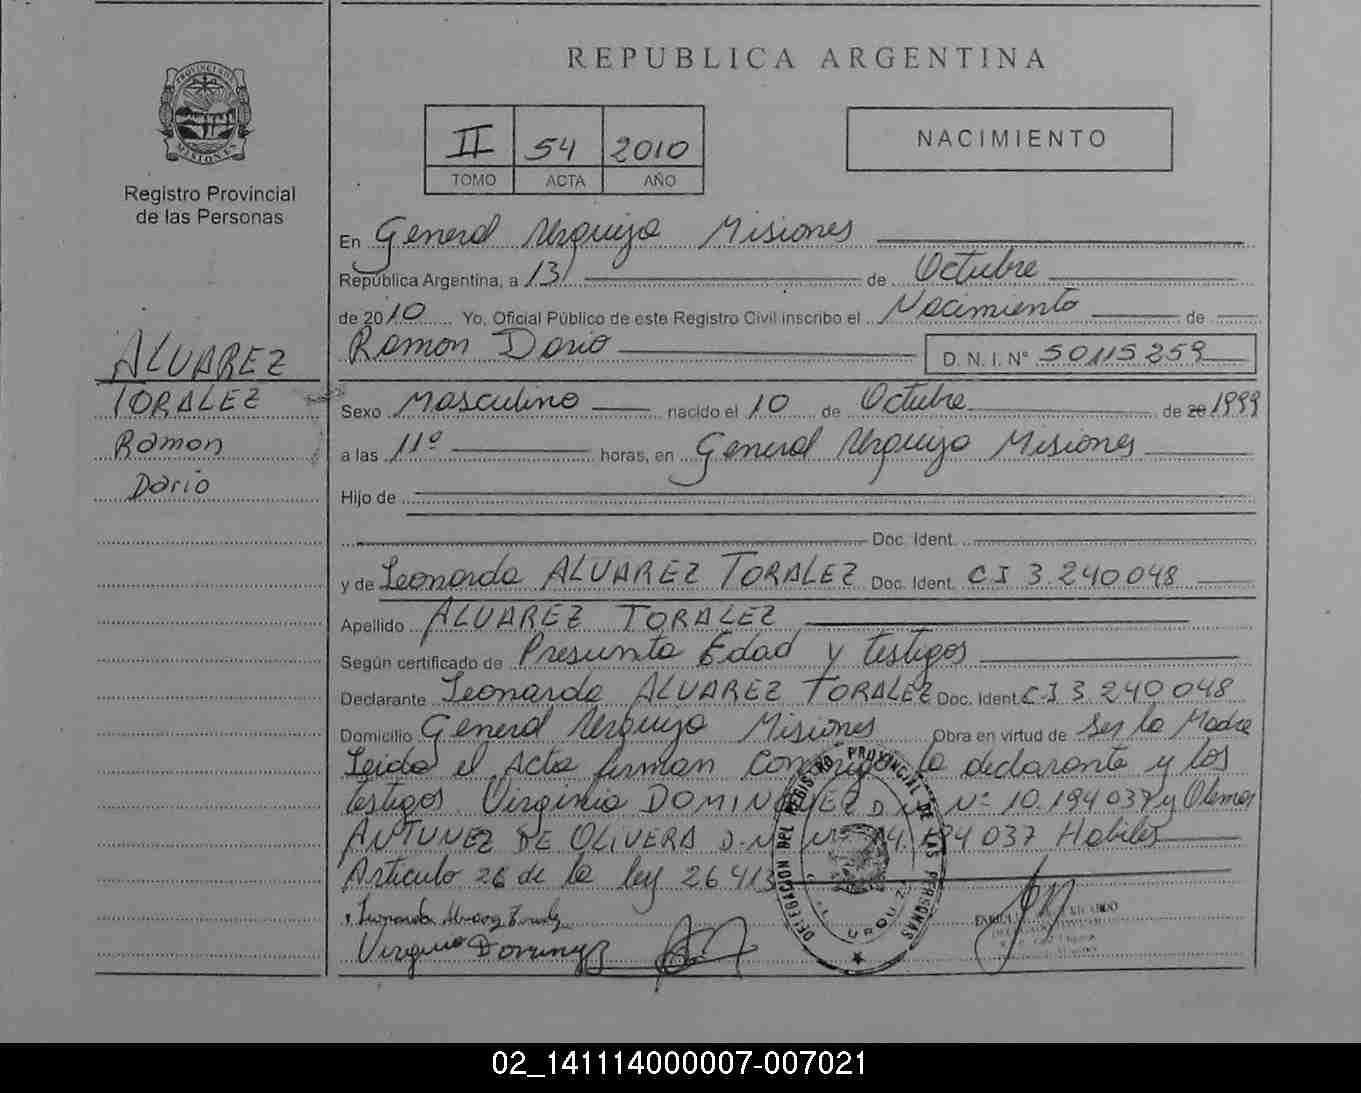 REPUBLICA ARGENTINA
PROVINCIA DE MISIONES
Registro Provincial
de las Personas
II 54 2010
TOMO ACTA AÑO
NACIMIENTO
ALVAREZ
TORALEZ
Ramon
Dario
En General Urquiza Misiones
República Argentina, a 13 de Octubre
de 2010 Yo, Oficial Público de este Registro Civil inscribo el Nacimiento de
Ramon Dario D. N. I. N° 50115259
Sexo Masculino nacido el 10 de Octubre de 20 1999
a las 11º horas, en General Urquiza Misiones
Hijo de
Doc. Ident.
y de Leonarda ALVAREZ TORALEZ Doc. Ident. CI 3.240048
Apellido ALVAREZ TORALEZ
Según certificado de Presunta Edad y testigos
Declarante Leonarda ALVAREZ TORALEZ Doc. Ident. C.I 3.240.048
Domicilio General Urquiza Misiones Obra en virtud de Ser la Madre
Leida el Acta firman conmigo la declarante y los
testigos Virginia DOMINGUEZ D.N. Nº 10.194.037 y
ANTUNEZ DE OLIVERA D.N. Nº 037 Habiles
Articulo 26 de la ley 26413
DELEGACION DEL REGISTRO PROVINCIAL DE LAS PERSONAS
URQUIZA
Virginia Dominguez
02_141114000007-007021